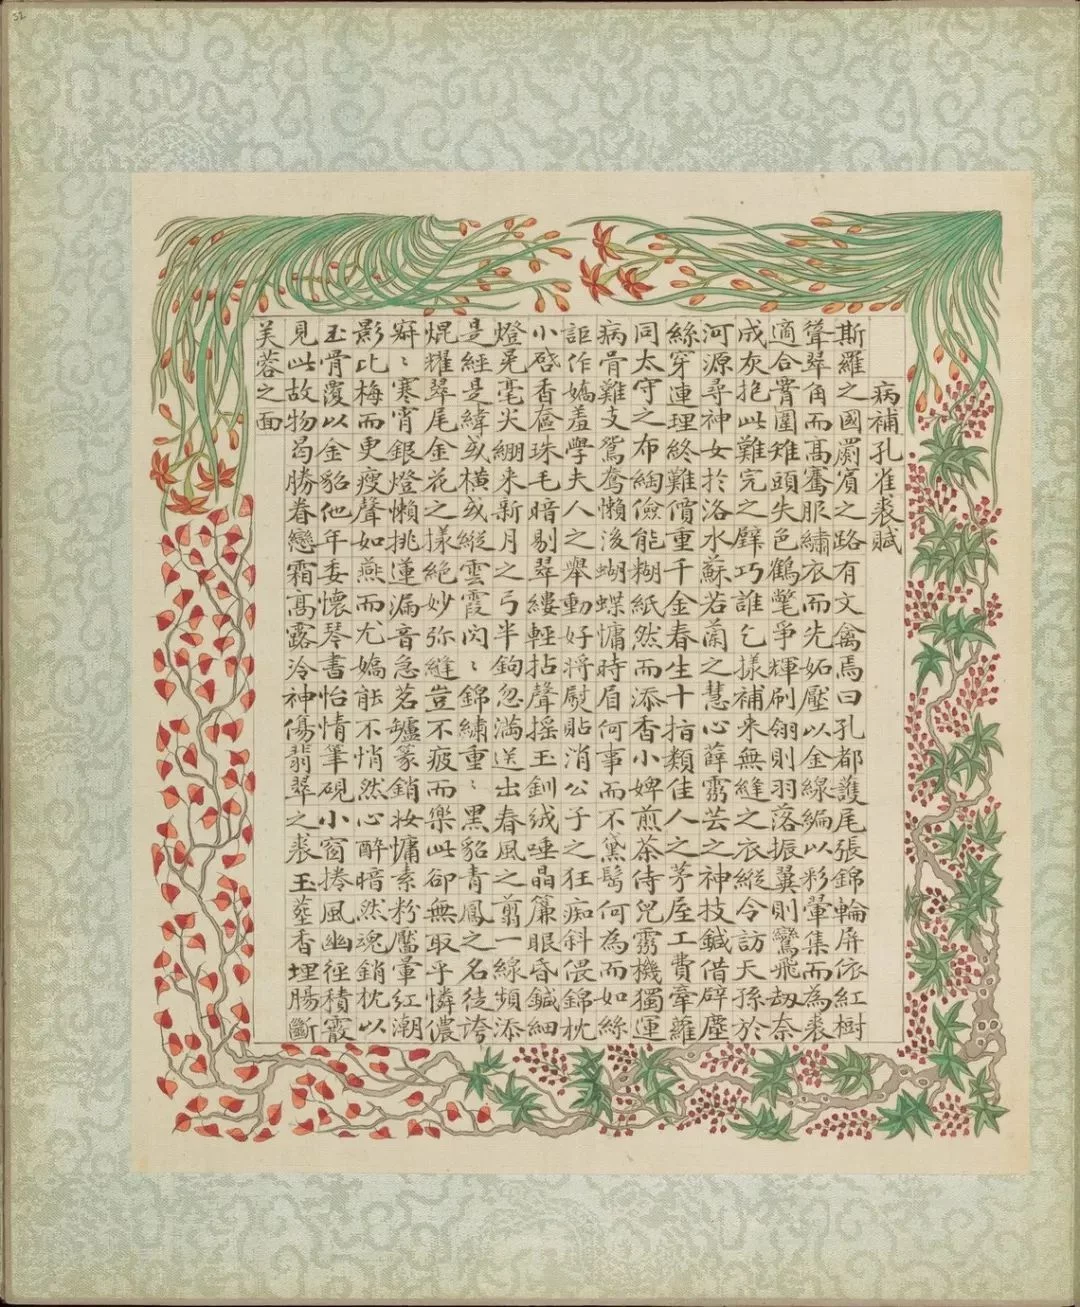 32
病補孔雀裘賦
斯羅之國罽賓之路有文禽焉曰孔都護尾張錦輪屏依紅樹
聳翠角而高騫服繡衣而先妬壓以金線編以彩翬集而為裘
適合霄圍雉頭失色鶴氅爭輝刷翎則羽落振翼則鸞飛劫奈
成灰抱此難完之璧巧誰乞樣補來無縫之衣縱令訪天孫於
河源尋神女於洛水蘇若蘭之慧心薛靈芸之神技鍼借辟塵
絲穿連理終難償重千金春生十指類佳人之茅屋工費牽蘿
同太守之布綯儉能糊紙然而添香小婢煎茶侍兒靈機獨運
病骨難支鴛鴦懶浚蝴蝶慵時眉何事而不黛髩何為而如絲
詎作嬌羞學夫人之舉動好將慰貼消公子之狂痴斜偎錦枕
小啓香奩珠毛暗剔翠縷輕拈聲搖玉釧絨唾晶簾眼昏鍼細
燈晃毫尖綳来新月之弓半鉤忽滿送出春風之剪一線頻添
是經是緯或橫或縱雲霞閃〻錦繡重〻黑貂青鳳之名徒誇
焜耀翠尾金花之樣絕妙弥縫豈不疲而樂此卻無取乎憐儂
辭〻寒宵銀燈懶挑蓮漏音急茗罏篆銷妝慵素粉靨暈紅潮
影比梅而更瘦聲如燕而尤嬌能不悄然心醉暗然魂銷枕以
玉骨覆以金貂他年委懷琴書怡情筆硯小窗捲風幽徑積霰
見此故物曷勝眷戀霜高露冷神傷翡翠之裘玉葬香埋腸斷
芙蓉之面